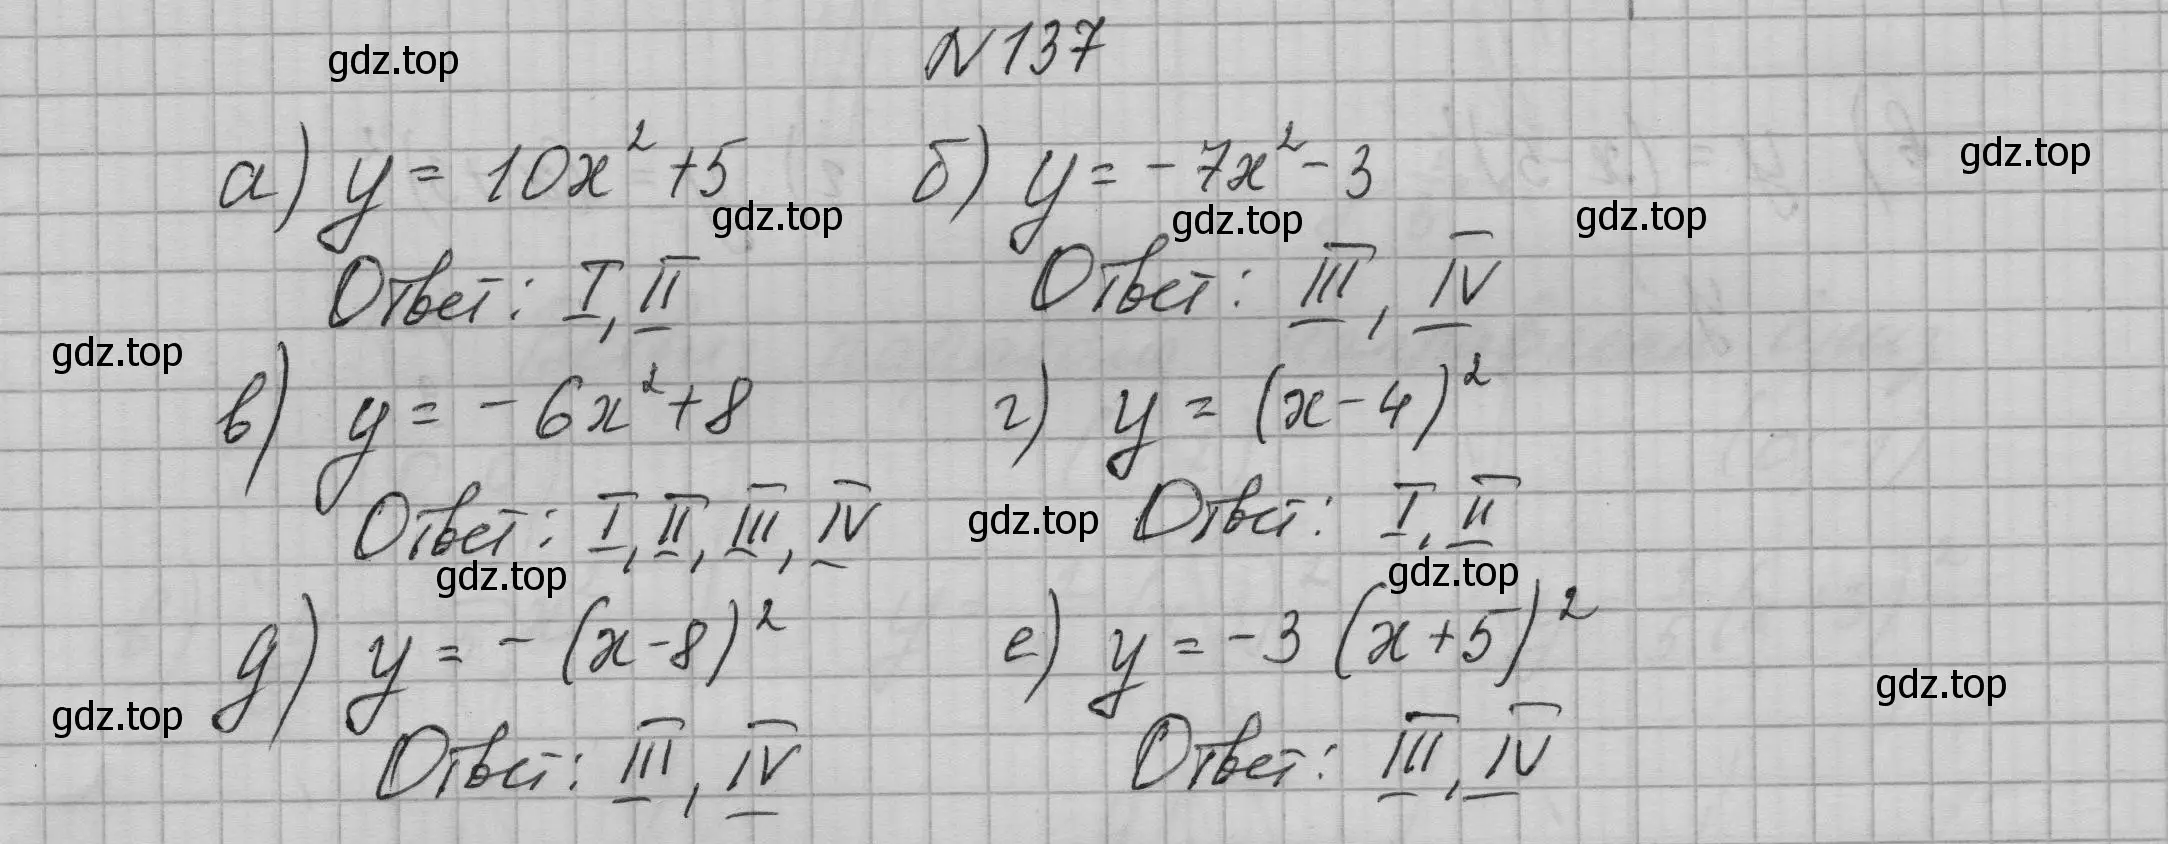 N 137
gdz.top
а) y = 10x² + 5 б) y = -7x² - 3
gdz.top
gdz.top gdz.top gdz.top
Ответ: I, II Ответ: III, IV
gdz.top
в) y = -6x² + 8 г) y = (x-4)²
Ответ: I, II, III, IV gdz.top Ответ: I, II
gdz.top gdz.top
д) y = -(x-8)² е) y = -3(x+5)²
gdz.top
gdz.top
Ответ: III, IV Ответ: III, IV